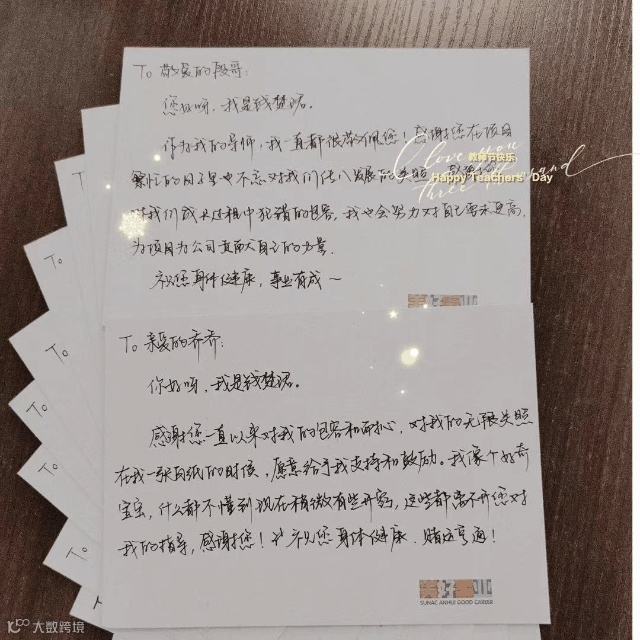 To 敬爱的段哥:
您好呀，我是钱楚涵。
作为我的导师，我一直都很敬佩您！感谢您在项目
繁忙的日子里也不忘对我们个人发展的关照
对我们成长过程中犯错的包容，我也会努力对自己要求更高，
为项目为公司贡献自己的力量.
祝您身体健康，事业有成～
I love you
three thousand
教师节快乐
Happy Teachers' Day
To 亲爱的乔乔:
你好呀，我是钱楚涵。
感谢您一直以来对我的包容和耐心，对我的无限关照
在我一张白纸的时候，愿意给予我支持和鼓励。我像个好奇
宝宝，什么都不懂到现在稍微有些开窍，这些都离不开您对
我的指导，感谢您！ 祝您身体健康．财运亨通！
SUNAC ANHUI GOOD CAREER
To
To
To
To
To
大数跨境